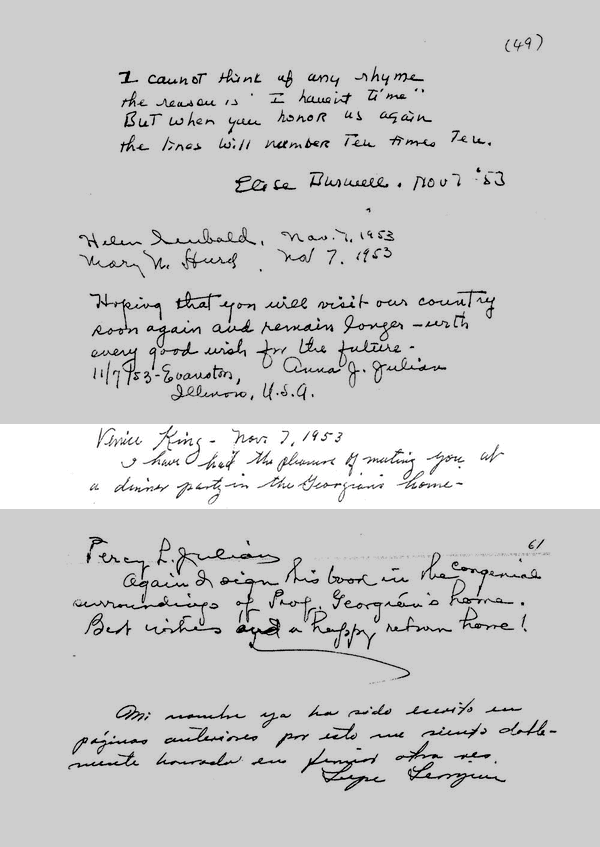 (49)
I cannot think of any rhyme
the reason is "I haven't time"
But when you honor us again
the lines will number Ten times Ten.
Elise Burwell. Nov 7 '53
Helen Nov. 7, 1953
Mary N. Hurd. Nov 7. 1953
Hoping that you will visit our country
soon again and remain longer - with
every good wish for the future -
11/7/53 - Evanston, Anna J. Julian
Illinois, U.S.A.
Venice King - Nov. 7, 1953
I have had the pleasure of meeting you at
a dinner party in the Georgian's home -
61
Percy L. Julian
Again I sign this book in the congenial
surroundings of Prof. Georgián's home.
Best wishes and a happy return home!
Mi nombre ya ha sido escrito en
páginas anteriores por esto me siento doble-
mente honrada en firmar otra ves.
Lupe Georgian